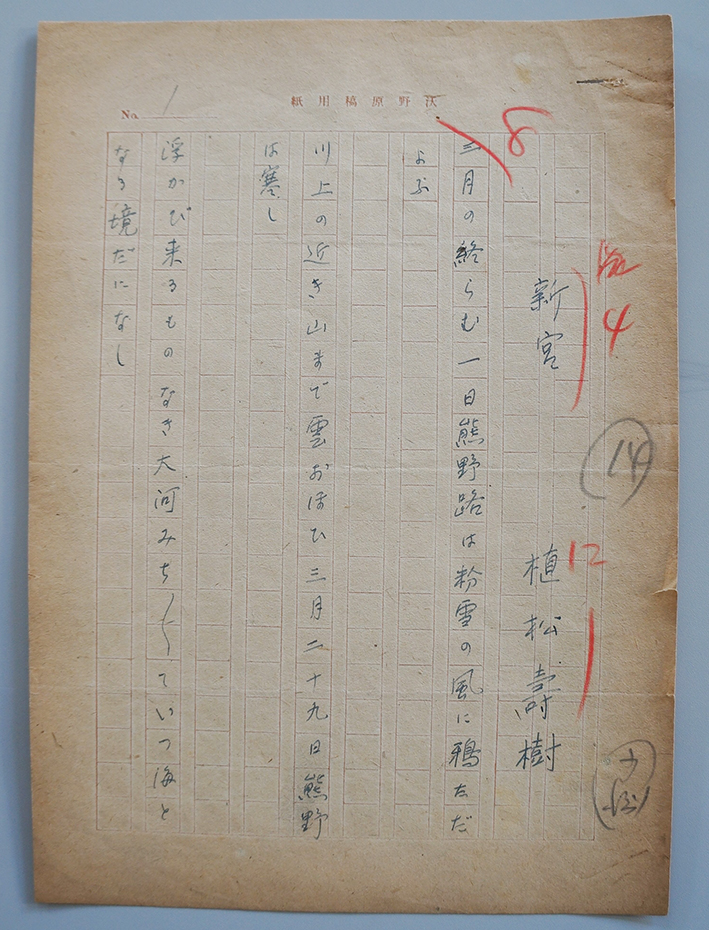 沃野原稿用紙
No. 1
4
14
12
8
新宮　植松壽樹
三月の終らむ一日熊野路は粉雪の風に鴉ただ
よふ
川上の近き山まで雲おほひ三月二十九日熊野
は寒し
浮かび来るものなき大河みち〳〵ていつ海と
なる境だになし